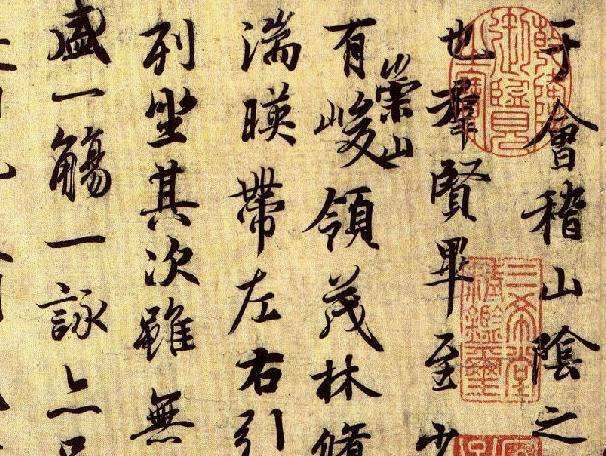 于會稽山陰之
也羣賢畢至少
有崇山峻領茂林脩
湍暎帶左右引
列坐其次雖無
盛一觴一詠亦足
三希堂精鑑璽